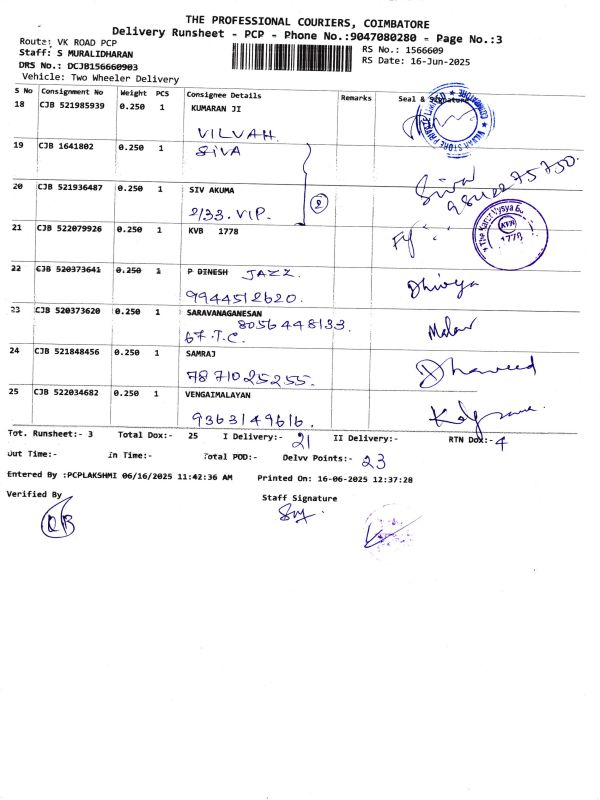 THE PROFESSIONAL COURIERS, COIMBATORE
Delivery Runsheet - PCP - Phone No.:9047080280 - Page No.:3
Route: VK ROAD PCP
RS No.: 1566609
Staff: S MURALIDHARAN
RS Date: 16-Jun-2025
DRS No.: DCJB156660903
Vehicle: Two Wheeler Delivery
S No Consignment No Weight PCS Consignee Details Remarks Seal & Signature
18 CJB 521985939 0.250 1 KUMARAN JI
VILVAH.
19 CJB 1641802 0.250 1 SIVA
Siva
20 CJB 521936487 0.250 1 SIV AKUMA
2/33. VIP. 2
21 CJB 522079926 0.250 1 KVB 1778
The Karur Vysya
KVB
1778
22 CJB 520373641 0.250 1 P DINESH JAZZ.
9944512620. Dhivya
23 CJB 520373620 0.250 1 SARAVANAGANESAN
8056448133
67.T.C.
24 CJB 521848456 0.250 1 SAMRAJ
7871025255.
25 CJB 522034682 0.250 1 VENGAIMALAYAN
9363149616.
Tot. Runsheet:- 3 Total Dox:- 25 I Delivery:- 21 II Delivery:- RTN Dox:- 4
Out Time:- In Time:- Total POD:- Delvv Points:- 23
Entered By :PCPLAKSHMI 06/16/2025 11:42:36 AM Printed On: 16-06-2025 12:37:28
Verified By Staff Signature